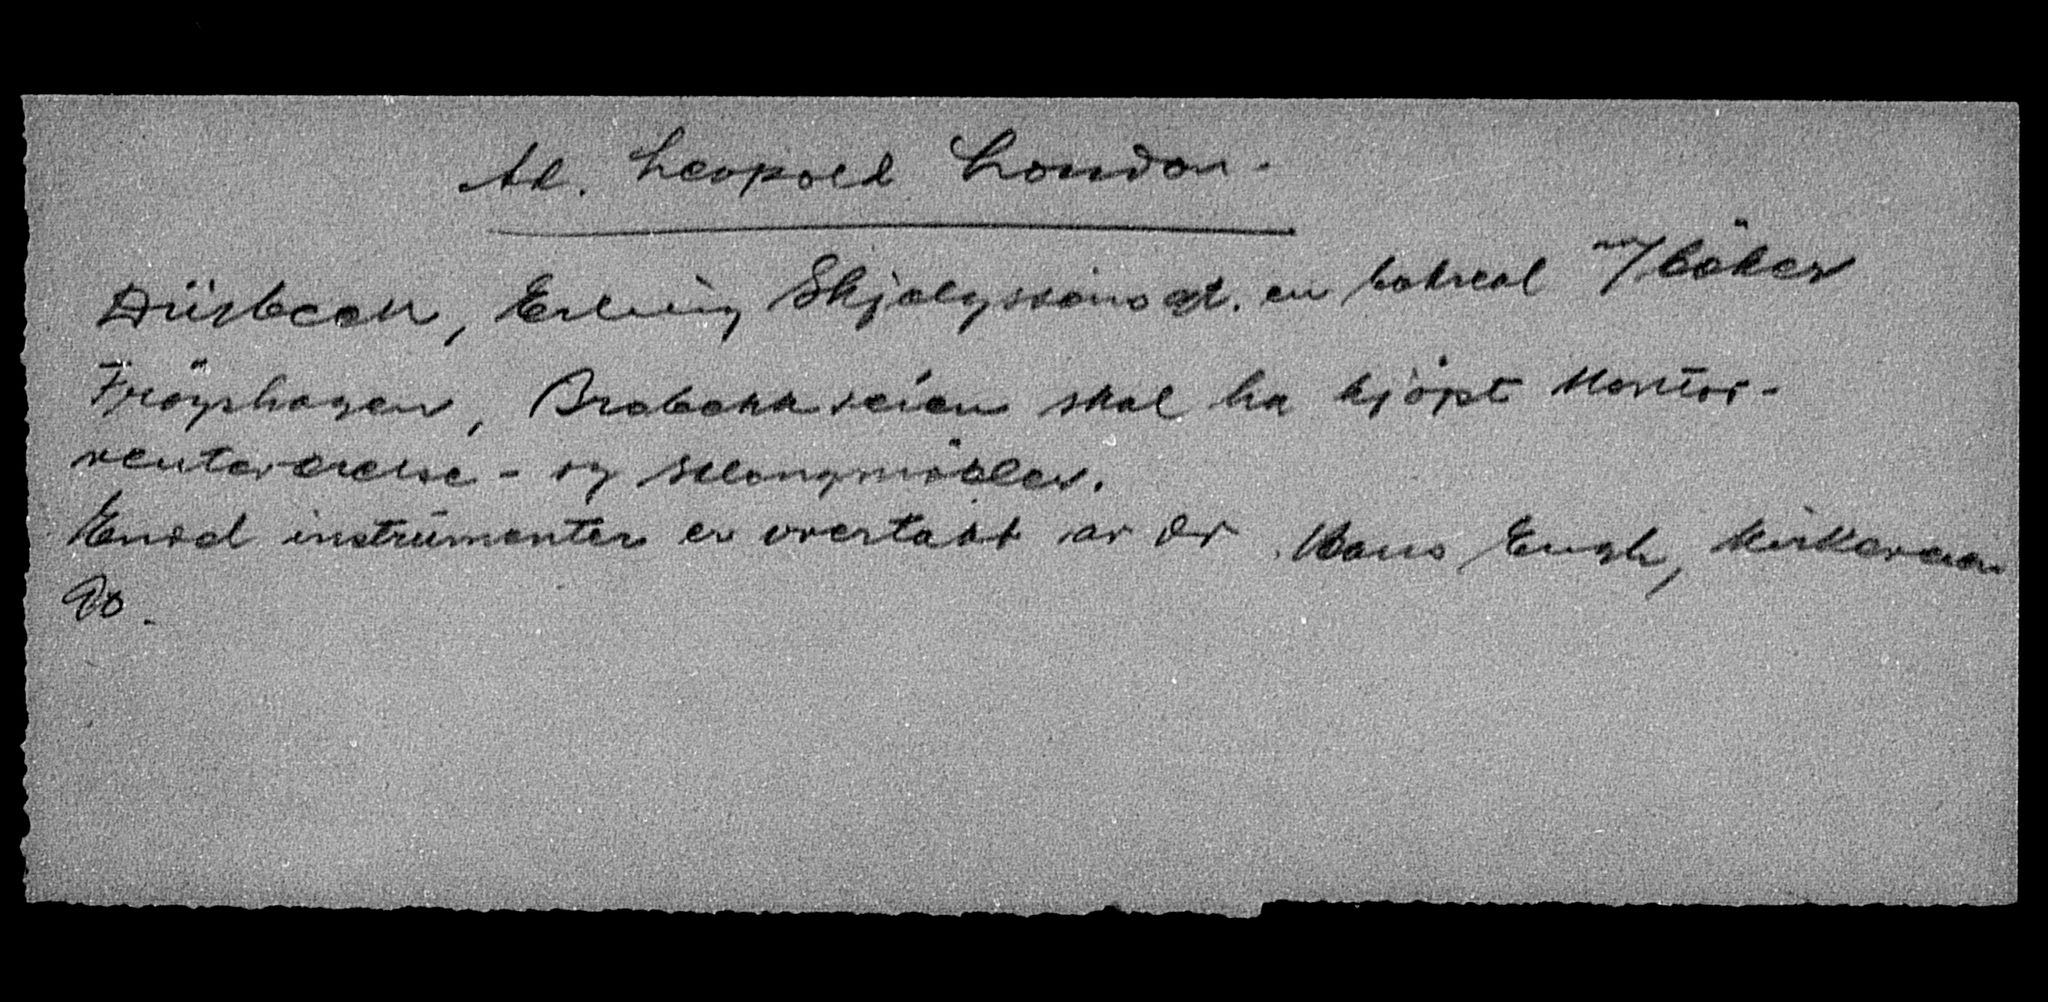 Ad. Leopold London.
Düsbeck, Erling Skjalgssons gt. en bokreol m/ böker
Fröyshagen, Brobekkveien skal ha kjöpt kontor-
venteværelse- og salongmöbler.
Endel instrumenter er overtatt av dr. Hans Engh, Kirkeveien
90.